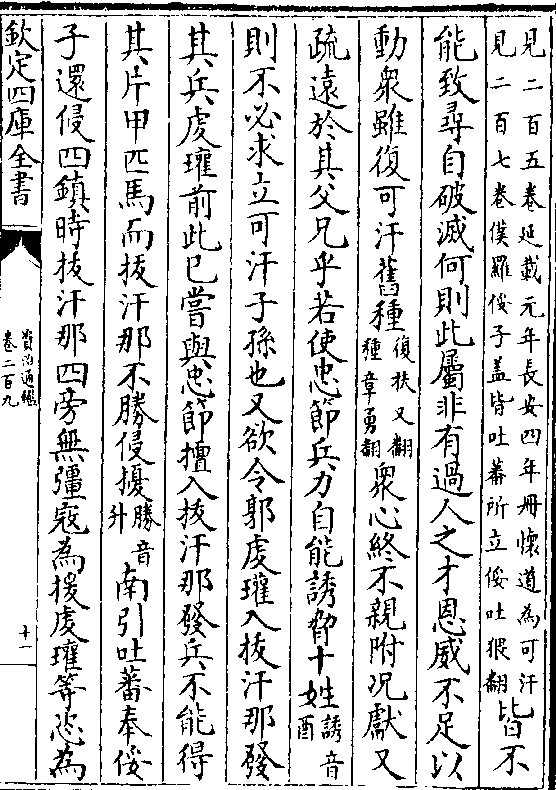 見二百五卷延載元年長安四年冊懷道為可汗
見二百七卷僕羅俀子盖皆吐蕃所立俀吐猥翻皆不
能致尋自破滅何則此屬非有過人之才恩威不足以
動衆雖復可汗舊種復扶又翻種章勇翻衆心終不親附况獻又
疏遠於其父兄乎若使忠節兵力自能誘脅十姓誘音酉
則不必求立可汗子孫也又欲令郭䖍瓘入拔汗那發
其兵䖍瓘前此已嘗與忠節擅入拔汗那發兵不能得
其片甲匹馬而拔汗那不勝侵擾勝音升南引吐蕃奉俀
子還侵四鎮時拔汗那四旁無彊寇為援䖍瓘等恣為
欽定四庫全書
資治通鑑
卷二百九
十一